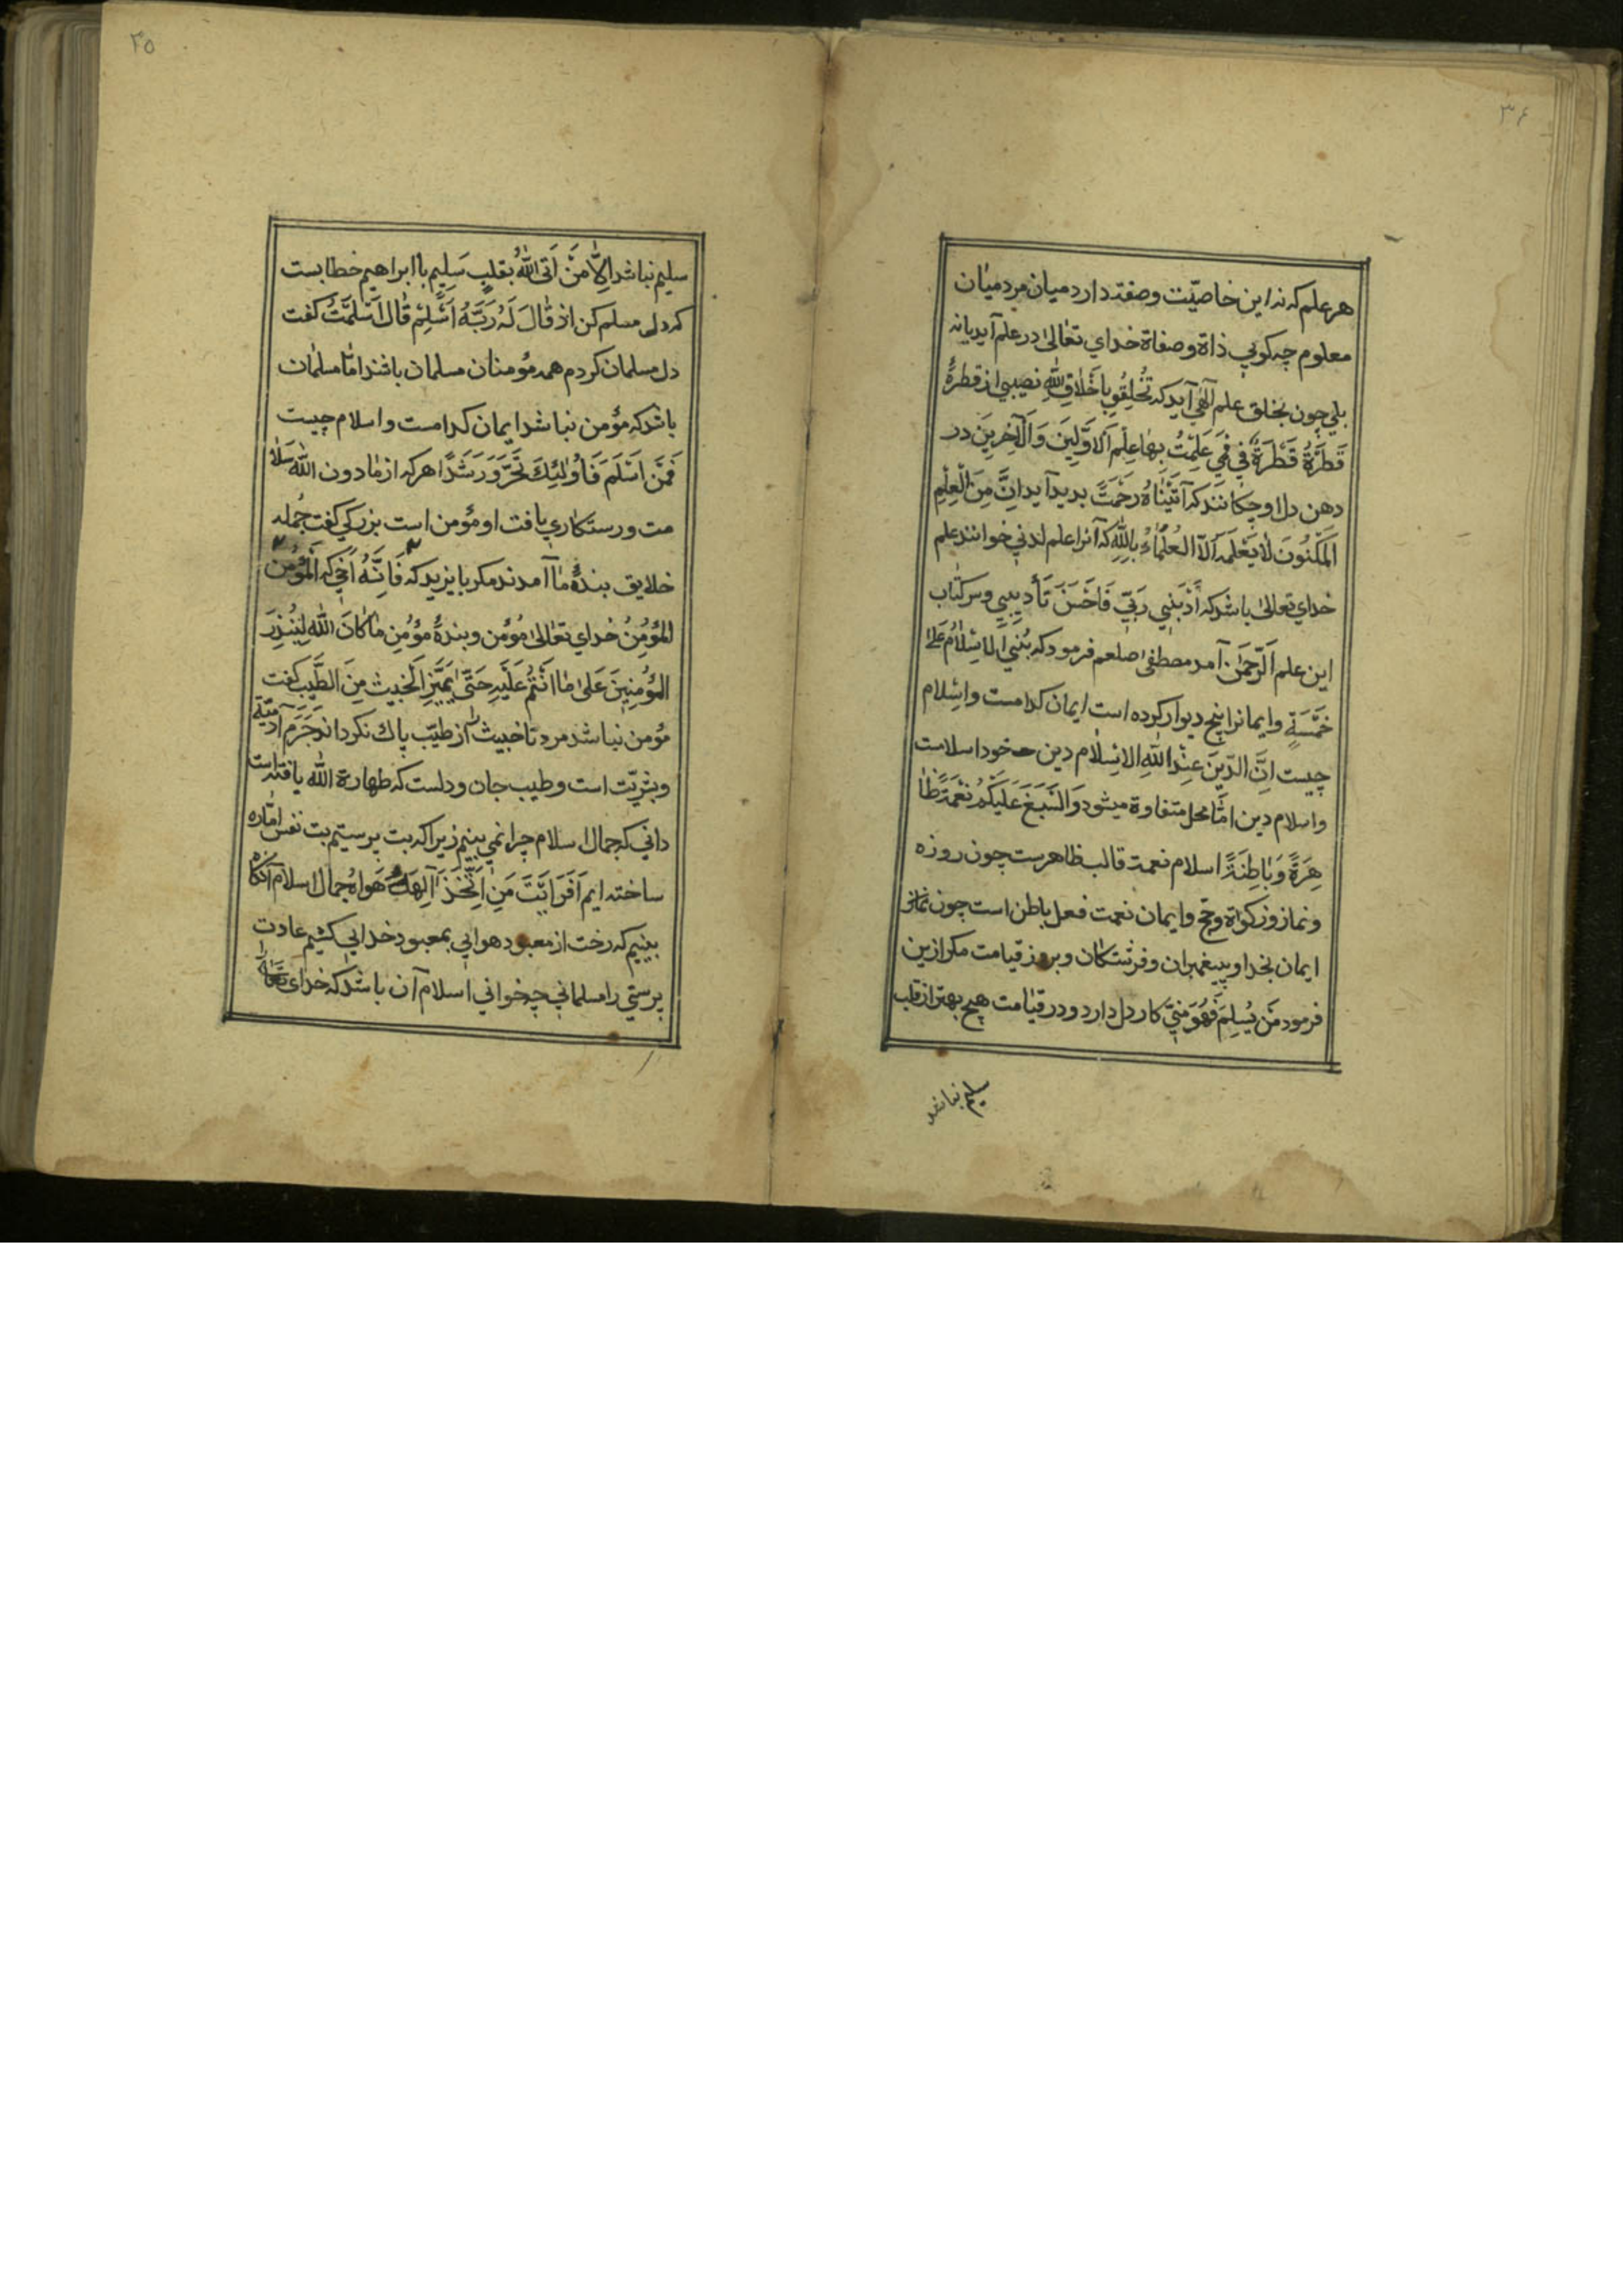 ۳۶
هر علم که نه این خاصیّت و صفته دارد میان مرد میان
معلوم چه کویي ذاة و صفاة خداي تعالیٰ در علم آید یا نه
بلي چون بخلق علم آلهي آید که تُخلِقُو بِاَخْلاقِ اللّٰهِ نصیبي از قطرۀ
قَطرَةُ قَطْرَةٌ في فَمَي عَلِمْتُ بِهَا عِلْم اَلاَوَّلينَ وَالآخِرينَ در
دهن دل او چکانند که آتَيْنَاهُ رَحْمَتً بدید آید اِنَّ مِنَ الْعِلْمِ
اَلمَكْنُونَ لا يَعْلَمَه اَلآ العُلَمَاءُ بِاللّٰهِ که آنرا علم لدني خوانند علم
خداي تعالیٰ باشد که اَدَّبَنِي رَبّي فَاَحْسَنَ تَأديبي و سر کتاب
این علم اَلرَّحمٰن آمد مصطفیٰ صلعم فرمود که بُنِي الاسْلامُ عَلیٰ
خَمْسَةٍ و ایمانرا پنج دیوار کرده است ایمان کدامست و اسلام
چیست اِنَّ الدّينَ عِنْدَ اللّٰهِ الاِسْلام دین خود اسلامت
و اسلام دین امّا محل متفاوة میشود وَالسَبَغَ عَلَيْكُمْ نِعْمَةً ظَا
هِرَةً وَبَاطِنَةً اسلام نعمة قالب ظاهرست چون روزه
و نماز و زکواة و حج و ایمان نعمت فعل باطن است چون
ایمان بخدا و پیغمبران و فرشتکان و بروز قیامت مکر ازین
فرمود مَن يُسْلِمَ فَهُوَ مِنّي کار دل دارد و در قیامت هیچ بهتر از قلب
سلیم نباشد
۳۵
سلیم نباشد اِلاَّ مَنْ اَتَی اللّٰهُ بقلبٍ سَلِيمٍ با ابراهیم خطابست
که دل مسلم کن اذ قَالَ لَهُ رَبَّهُ اَسْلِمْ قَالَ اَسْلَمْتُ کفت
دل مسلمان کردم همه مؤمنان مسلمان باشند امّا مسلمان
باشد که مؤمن نباشد ایمان کدامست و اسلام چیست
فَمَنْ اَسْلَمَ فَاُولٰئِكَ تَحَرَّوَ رَشَدًا هر که از مادون اللّٰه سلا
مت و رستکاري یافت او مؤمن است بزرکي کفت جمله
خلایق بندۀ ما آمدند مکر بایزید که فَاِنَّهُ اَخي که اَلْمُؤْمن
المُؤمِنُ خداي تعالیٰ مُؤمن و بندۀ مُؤمِن مَا کَانَ اللّٰه لِيُنْذِرَ
المُؤْمِنِينَ عَلیٰ مَا اَنْتُمْ عَلَيْهِ حَتّیٰ يَمِيّزَ الخَبيث مِنَ الطّيِّب کفت
مؤمن نباشد مرد تا خبیث از طیّب پاك نکرداند جَرَم آدمیّة
و بشریّت است و طیب جان و دلست که طهارة اللّٰه یافته است
داني که جمال اسلام چرا نمي بینیم زیرا که بت پرستیم بت نفس امّاره
ساخته ایم اَفَرَاَيْتَ مَنِ اتَّخَذَ آلِهَكُ هَوَاهُ جمال اسلام آنکاه
بینیم که رخت از معبود هوایي بمعبود خدایي کشیم عادت
پرستي را مسلماني چه خواني اسلام آن باشد که خدای تعالیٰ